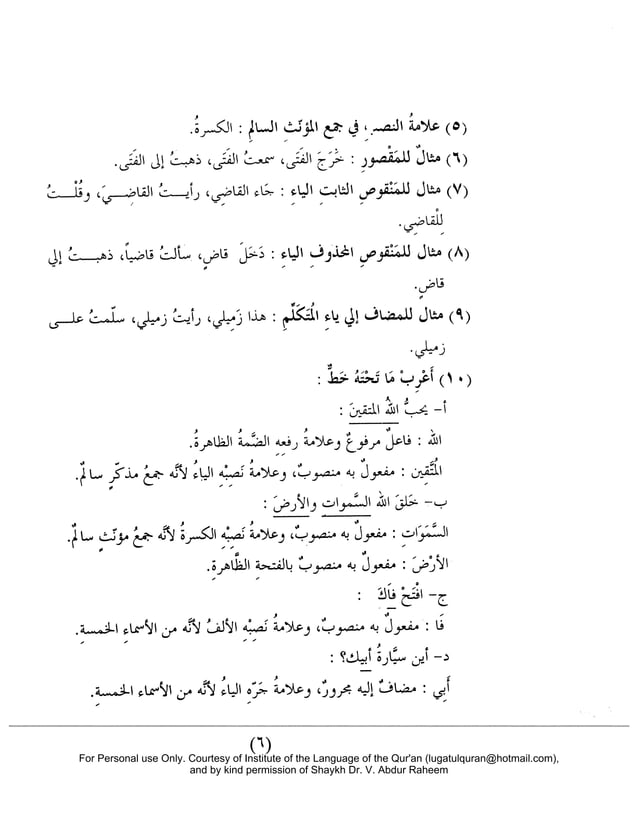 (٥) علامةُ النصب، في جمع المؤنّثِ السالمِ : الكسرةُ.
(٦) مثالٌ للمَقْصورِ : خَرَجَ الفَتَى، سمعتُ الفَتَى، ذهبتُ إلى الفَتَى.
(٧) مثال للمَنْقوصِ الثابتِ الياءِ : جَاء القاضِي، رأيـتُ القاضِـيَ، وقُلْـتُ
لِلْقاضِي.
(٨) مثال للمَنْقوصِ المحذوفِ الياءِ : دَخَلَ قاضٍ، سألتُ قاضياً، ذهبـتُ إلي
قاضٍ.
(٩) مثال للمضاف إلي ياءِ المُتَكَلِّمِ : هذا زَميلي، رأيتُ زميلي، سلّمتُ علـى
زميلي.
(١٠) أَعْرِبْ مَا تَحْتَهُ خَطٌّ :
أ- يحبُّ اللهُ المتقينَ :
الله : فاعلٌ مرفوعٌ وعلامةُ رفعِهِ الضَّمةُ الظاهرةُ.
المُتَّقِينَ : مفعولٌ به منصوبٌ، وعلامةُ نَصبِْه الياءُ لأنَّه جمعُ مذكّرٍ سالمٌ.
ب- خَلقَ الله السَّموات والأرضَ :
السَّمَوَاتِ : مفعولٌ به منصوبٌ، وعلامةُ نَصبِْه الكسرةُ لأنَّه جمعُ مؤنّثٍ سالمٌ.
الأرْضَ : مفعولٌ به منصوبٌ بالفتحةِ الظَّاهرةِ.
ج- افْتَحْ فَاكَ :
فَا : مفعولٌ به منصوبٌ، وعلامةُ نَصبِْه الألفُ لأنَّه من الأسماءِ الخمسةِ.
د- أين سيَّارةُ أبيك؟ :
أَبِي : مضافٌ إليه مجرورٌ، وعلامةُ جَرّهِ الياءُ لأنَّه من الأسماء الخمسةِ.
(٦)
For Personal use Only. Courtesy of Institute of the Language of the Qur'an (lugatulquran@hotmail.com),
and by kind permission of Shaykh Dr. V. Abdur Raheem